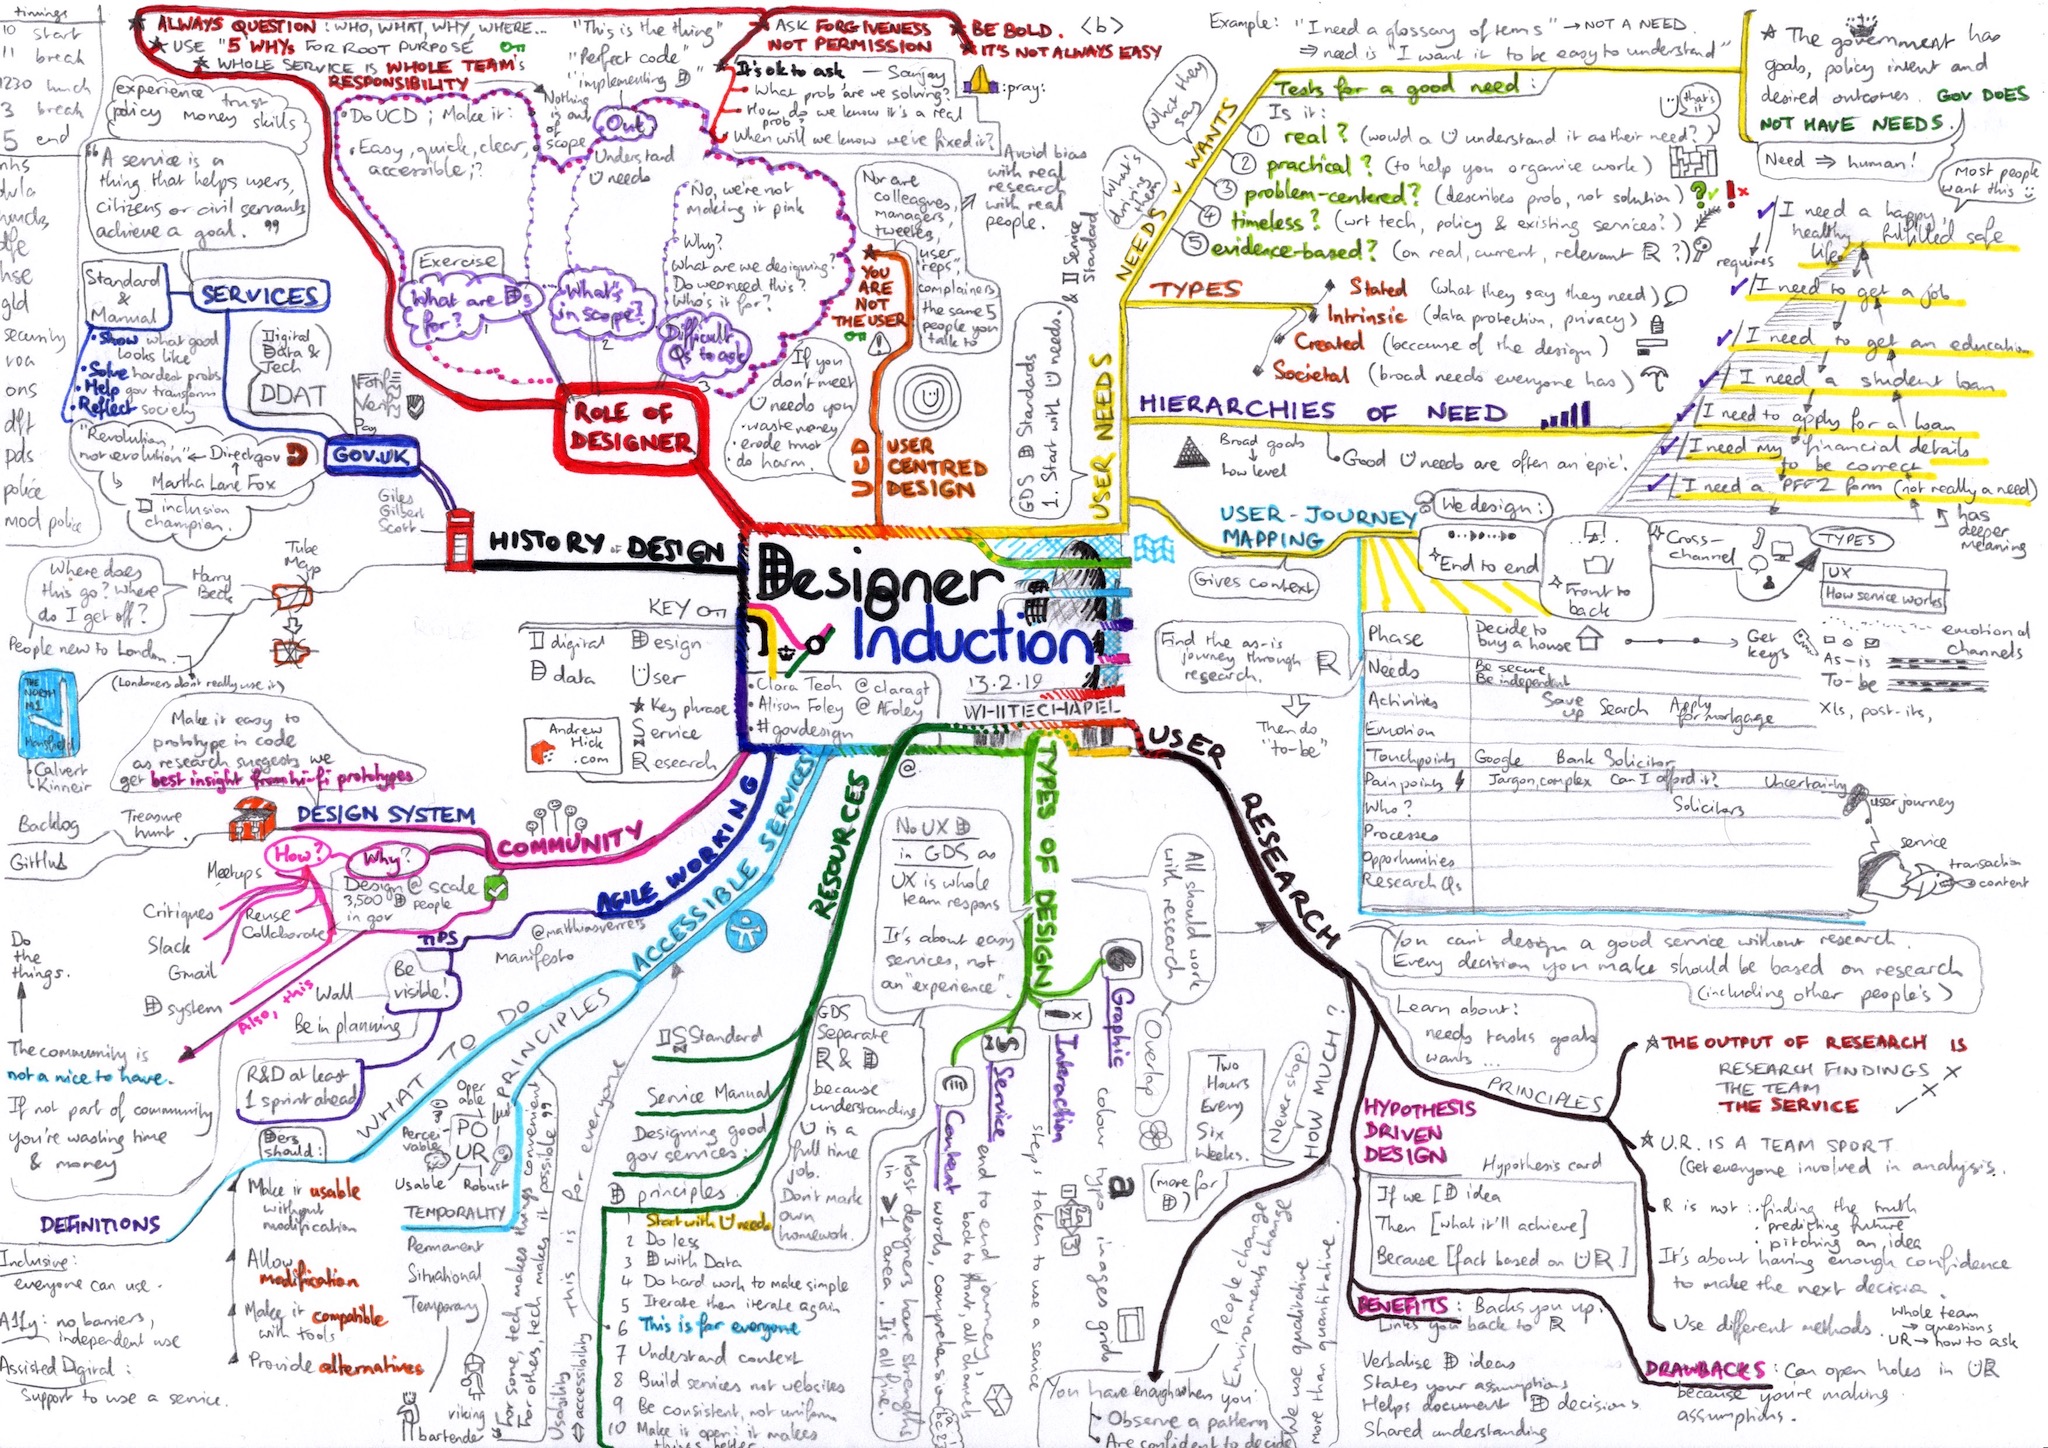 timings
10 start
11 break
1230 lunch
3 break
5 end
nhs
dvla
hmcts
dfe
hse
gld
security
voa
ons
dft
pds
police
mod police
★ ALWAYS QUESTION: WHO, WHAT, WHY, WHERE...
★ USE "5 WHYs FOR ROOT PURPOSE
★ WHOLE SERVICE IS WHOLE TEAM'S
RESPONSIBILITY
"This is the thing"
"Perfect code"
"implementing D"
Nothing is out of scope
★ ASK FORGIVENESS
NOT PERMISSION
★ BE BOLD.
★ IT'S NOT ALWAYS EASY
<b>
:pray:
★ It's ok to ask — Sanjay
What prob are we solving?
How do we know it's a real
prob?
When will we know we've fixed it?
experience trust
policy money skills
"A service is a
thing that helps users,
citizens or civil servants
achieve a goal."
Standard
&
Manual
SERVICES
• Show what good
looks like
• Solve hardest probs
• Help gov transform
• Reflect society
Digital
Data &
Tech
DDAT
Notify
Verify
Pay
GOV.UK
"Revolution,
not evolution"
Directgov
Martha Lane Fox
D inclusion
champion.
• Do UCD; Make it:
• Easy, quick, clear,
accessible;?
Out
Understand
U needs
No, we're not
making it pink
Why?
What are we designing?
Do we need this?
Who's it for?
Exercise
What are Ds
for?
1
What's
in scope?
2
Difficult
Qs to ask
3
ROLE OF
DESIGNER
Avoid bias
with real
research
with real
people.
Nor are
colleagues,
managers,
tweeters,
"user
reps",
complainers
the same 5
people you
talk to
★ YOU
ARE
NOT
THE USER
If you
don't meet
U needs you
• waste money
• erode trust
• do harm.
USER
CENTRED
DESIGN
GDS D Standards
1. Start with U needs.
& D Service
Standard
USER NEEDS
NEEDS v WANTS
What they
say
What's
driving
them
Example: "I need a glossary of terms" → NOT A NEED
⇒ need is "I want it to be easy to understand"
Tests for a good need:
Is it:
1 real? (would a U understand it as their need?)
that's it
2 practical? (to help you organise work)
3 problem-centered? (describes prob, not solution)
4 timeless? (wrt tech, policy & existing services?)
5 evidence-based? (on real, current, relevant R?)
★ The government has
goals, policy intent and
desired outcomes. GOV DOES
NOT HAVE NEEDS.
Need ⇒ human!
Most people
want this
TYPES
Stated (what they say they need)
Intrinsic (data protection, privacy)
Created (because of the design)
Societal (broad needs everyone has)
HIERARCHIES OF NEED
Broad goals
↓
Low level
Good U needs are often an 'epic'.
I need a happy,
healthy fulfilled safe
life
requires
I need to get a job
I need to get an education
I need a student loan
I need to apply for a loan
I need my financial details
to be correct
I need a PFF2 form (not really a need)
has
deeper
meaning
USER-JOURNEY
MAPPING
Gives context
We design:
End to end
Front to
back
Cross-
channel
TYPES
UX
How service works
Find the as-is
journey through
research.
R
Then do
"to-be"
Phase Decide to buy a house Get keys
emotional
channels
As-is
To-be
Xls, post-its,
Needs Be secure
Be independent
Activities Save up Search Apply for mortgage
Emotion
Touchpoints Google Bank Solicitor
Pain points Jargon, complex Can I afford it? Uncertainty
Who? Solicitors
Processes
Opportunities
Research Qs
user journey
service
transaction
content
Giles
Gilbert
Scott
HISTORY OF DESIGN
Tube
Map
Harry
Beck
Where does
this go? Where
do I get off?
People new to London.
(Londoners don't really use it)
THE NORTH
M1
Mansfield
Calvert
Kinneir
KEY
D digital
D data
Design
User
★ Key phrase
Service
Research
Andrew
Hick
.com
Designer
Induction
• Clara Teoh @claragt
• Alison Foley @AFoley
• #govdesign
13.2.19
WHITECHAPEL
Make it easy to
prototype in code
as research suggests we
get best insight from hi-fi prototypes
DESIGN SYSTEM
Treasure
hunt.
Backlog
GitHub
COMMUNITY
How?
Why?
Design @ scale
3,500 D people
in gov
Meetups
Critiques
Slack
Gmail
D system
Reuse
Collaborate
Also, this
Do
the
things.
The community is
not a nice to have.
If not part of community
you're wasting time
& money
AGILE WORKING
@matthiasverrets
Manifesto
TIPS
Be
visible!
Wall
Be in planning
R&D at least
1 sprint ahead
ACCESSIBLE SERVICES
WHAT TO DO
PRINCIPLES
Ders
should:
Make it usable
without
modification
Allow
modification
Make it compatible
with tools
Provide alternatives
Operable
Perceivable
PO
UR
Usable
Robust
TEMPORALITY
Permanent
Situational
Temporary
viking
bartender
"For some, tech makes things convenient
For others, tech makes it possible"
Usability = this is for everyone
⇔ accessibility
DEFINITIONS
Inclusive:
everyone can use.
A11y: no barriers,
independent use
Assisted Digital:
Support to use a service.
RESOURCES
DS Standard
Service Manual
Designing good
gov services:
D principles
1 Start with U needs
2 Do less
3 D with Data
4 Do hard work to make simple
5 Iterate then iterate again
6 This is for everyone
7 Understand context
8 Build services not websites
9 Be consistent, not uniform
10 Make it open: it makes
things better
@
No UX D
in GDS as
UX is whole
team respons
It's about easy
services, not
an "experience".
GDS
Separate
R & D
because
understanding
U is a
full time
job.
Don't mark
own
homework.
TYPES OF DESIGN
Graphic colour typo images grids
Interaction steps taken to use a service
Service end to end journey,
back to front, all channels
Content words, comprehension
Most designers have strengths
in >1 area. It's all fine.
All should work
with research
Overlap
USER
RESEARCH
You can't design a good service without research.
Every decision you make should be based on research
(including other people's)
Learn about:
needs tasks goals
wants...
HOW MUCH?
Never stop.
Two
Hours
Every
Six
Weeks.
(more for
D)
People change
Environments change
We use qualitative
more than quantitative.
You have enough when you:
Observe a pattern
Are confident to decide
PRINCIPLES
★ THE OUTPUT OF RESEARCH IS
RESEARCH FINDINGS ×
THE TEAM ×
THE SERVICE ✓
★ U.R. IS A TEAM SPORT
(Get everyone involved in analysis.
R is not: • finding the truth
• predicting future
• pitching an idea
It's about having enough confidence
to make the next decision
Use different methods.
Whole team
→ questions
UR → how to ask
HYPOTHESIS
DRIVEN
DESIGN
Hypothesis card
If we [D idea
Then [what it'll achieve]
Because [fact based on UR]
BENEFITS: Backs you up.
Links you back to R
Verbalise D ideas
States your assumptions
Helps document D decisions
Shared understanding
DRAWBACKS: Can open holes in UR
because you're making
assumptions.